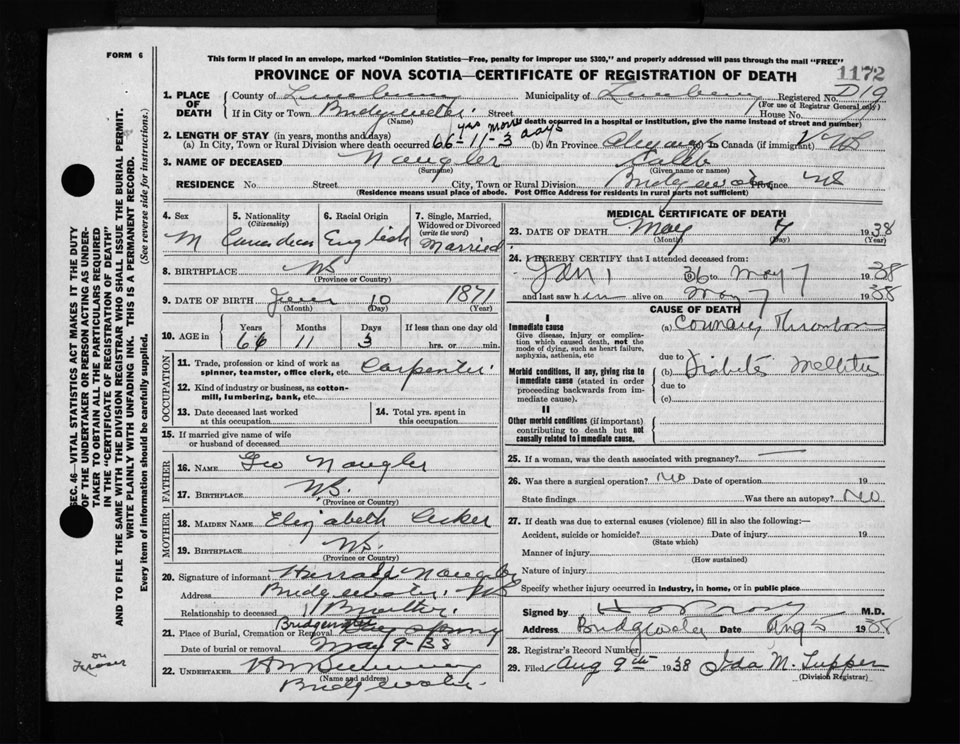 FORM 6
This form if placed in an envelope, marked "Dominion Statistics—Free, penalty for improper use $300," and properly addressed will pass through the mail "FREE"
1172
PROVINCE OF NOVA SCOTIA—CERTIFICATE OF REGISTRATION OF DEATH
SEC. 46—VITAL STATISTICS ACT MAKES IT THE DUTY
OF THE UNDERTAKER OR PERSON ACTING AS UNDER-
TAKER TO OBTAIN ALL THE PARTICULARS REQUIRED
IN THE "CERTIFICATE OF REGISTRATION OF DEATH"
AND TO FILE THE SAME WITH THE DIVISION REGISTRAR WHO SHALL ISSUE THE BURIAL PERMIT.
WRITE PLAINLY WITH UNFADING INK. THIS IS A PERMANENT RECORD.
Every item of information should be carefully supplied. (See reverse side for instructions.)
1. PLACE OF DEATH County of Lunenburg Municipality of Lunenburg Registered No. D19
(For use of Registrar General only)
If in City or Town Bridgewater Street House No.
(Name) (If death occurred in a hospital or institution, give the name instead of street and number)
2. LENGTH OF STAY (in years, months and days) yrs mons days
(a) In City, Town or Rural Division where death occurred 66-11-3 (b) In Province Always (c) In Canada (if immigrant) NS
3. NAME OF DECEASED Naugler Caleb
(Surname) (Given name or names)
RESIDENCE No. Street City, Town or Rural Division Bridgewater Province NS
(Residence means usual place of abode. Post Office Address for residents in rural parts not sufficient)
4. Sex M
5. Nationality (Citizenship) Canadian
6. Racial Origin English
7. Single, Married, Widowed or Divorced (write the word) Married
8. BIRTHPLACE NS
(Province or Country)
9. DATE OF BIRTH June 10 1871
(Month) (Day) (Year)
10. AGE in Years Months Days If less than one day old
66 11 3 hrs. or min.
OCCUPATION
11. Trade, profession or kind of work as spinner, teamster, office clerk, etc. Carpenter
12. Kind of industry or business, as cotton-mill, lumbering, bank, etc.
13. Date deceased last worked at this occupation
14. Total yrs. spent in this occupation
15. If married give name of wife or husband of deceased
FATHER
16. NAME Geo Naugler
17. BIRTHPLACE NS.
(Province or Country)
MOTHER
18. MAIDEN NAME Elizabeth
19. BIRTHPLACE NS.
(Province or Country)
20. Signature of informant Naugler
Address Bridgewater NS
Relationship to deceased Brother
21. Place of Burial, Cremation or Removal Bridgewater
Date of burial or removal May 9-38
22. UNDERTAKER
(Name and address)
Bridgewater
on
MEDICAL CERTIFICATE OF DEATH
23. DATE OF DEATH May 7 1938
(Month) (Day) (Year)
24. I HEREBY CERTIFY that I attended deceased from:
Jan 1 36 to May 7 1938
and last saw him alive on May 7 1938
CAUSE OF DEATH
I
Immediate cause (a) Coronary Thrombosis
Give disease, injury or complica-
tion which caused death, not the
mode of dying, such as heart failure,
asphyxia, asthenia, etc
due to
Morbid conditions, if any, giving rise to (b) Diabetes Mellitus
immediate cause (stated in order due to
proceeding backwards from im- (c)
mediate cause).
II
Other morbid conditions (if important)
contributing to death but not
causally related to immediate cause.
25. If a woman, was the death associated with pregnancy? —
26. Was there a surgical operation? No Date of operation 19
State findings Was there an autopsy? No
27. If death was due to external causes (violence) fill in also the following:—
Accident, suicide or homicide? Date of injury 19
(State which)
Manner of injury
(How sustained)
Nature of injury
Specify whether injury occurred in industry, in home, or in public place
Signed by M.D.
Address Bridgewater Date Aug 5 1938
28. Registrar's Record Number
29. Filed Aug 9th 1938 Ida M. Tupper
(Division Registrar)